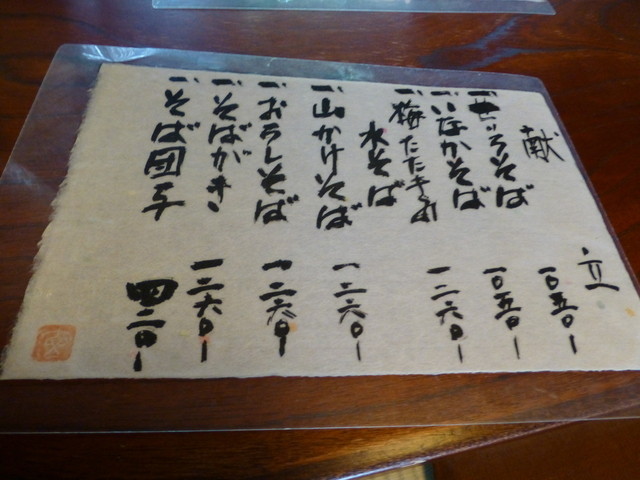 献立
一、せいろそば 一〇五〇ー
一、いなかそば 一〇五〇ー
一、梅たたき
水そば 一二六〇ー
一、山かけそば 一二六〇ー
一、おろしそば 一二六〇ー
一、そばがき 一二六〇ー
一、そば団子 四二〇ー